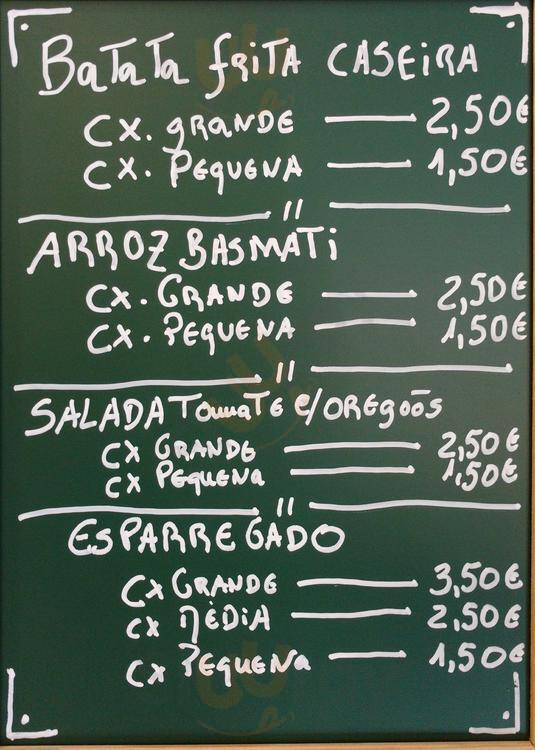 BaTaTa friTA CASEiRA
CX. grANDE — 2,50€
CX. PEQUENA — 1,50€
//
ARROZ BASMATi
CX. GRANDE — 2,50€
CX. PEQUENA — 1,50€
//
SALADA TomaTE C/OREgõos
CX GRANDE — 2,50€
CX PEQUENa — 1,50€
//
ESPARREGADO
CX GRANDE — 3,50€
CX MÉDiA — 2,50€
CX PEQUENa — 1,50€